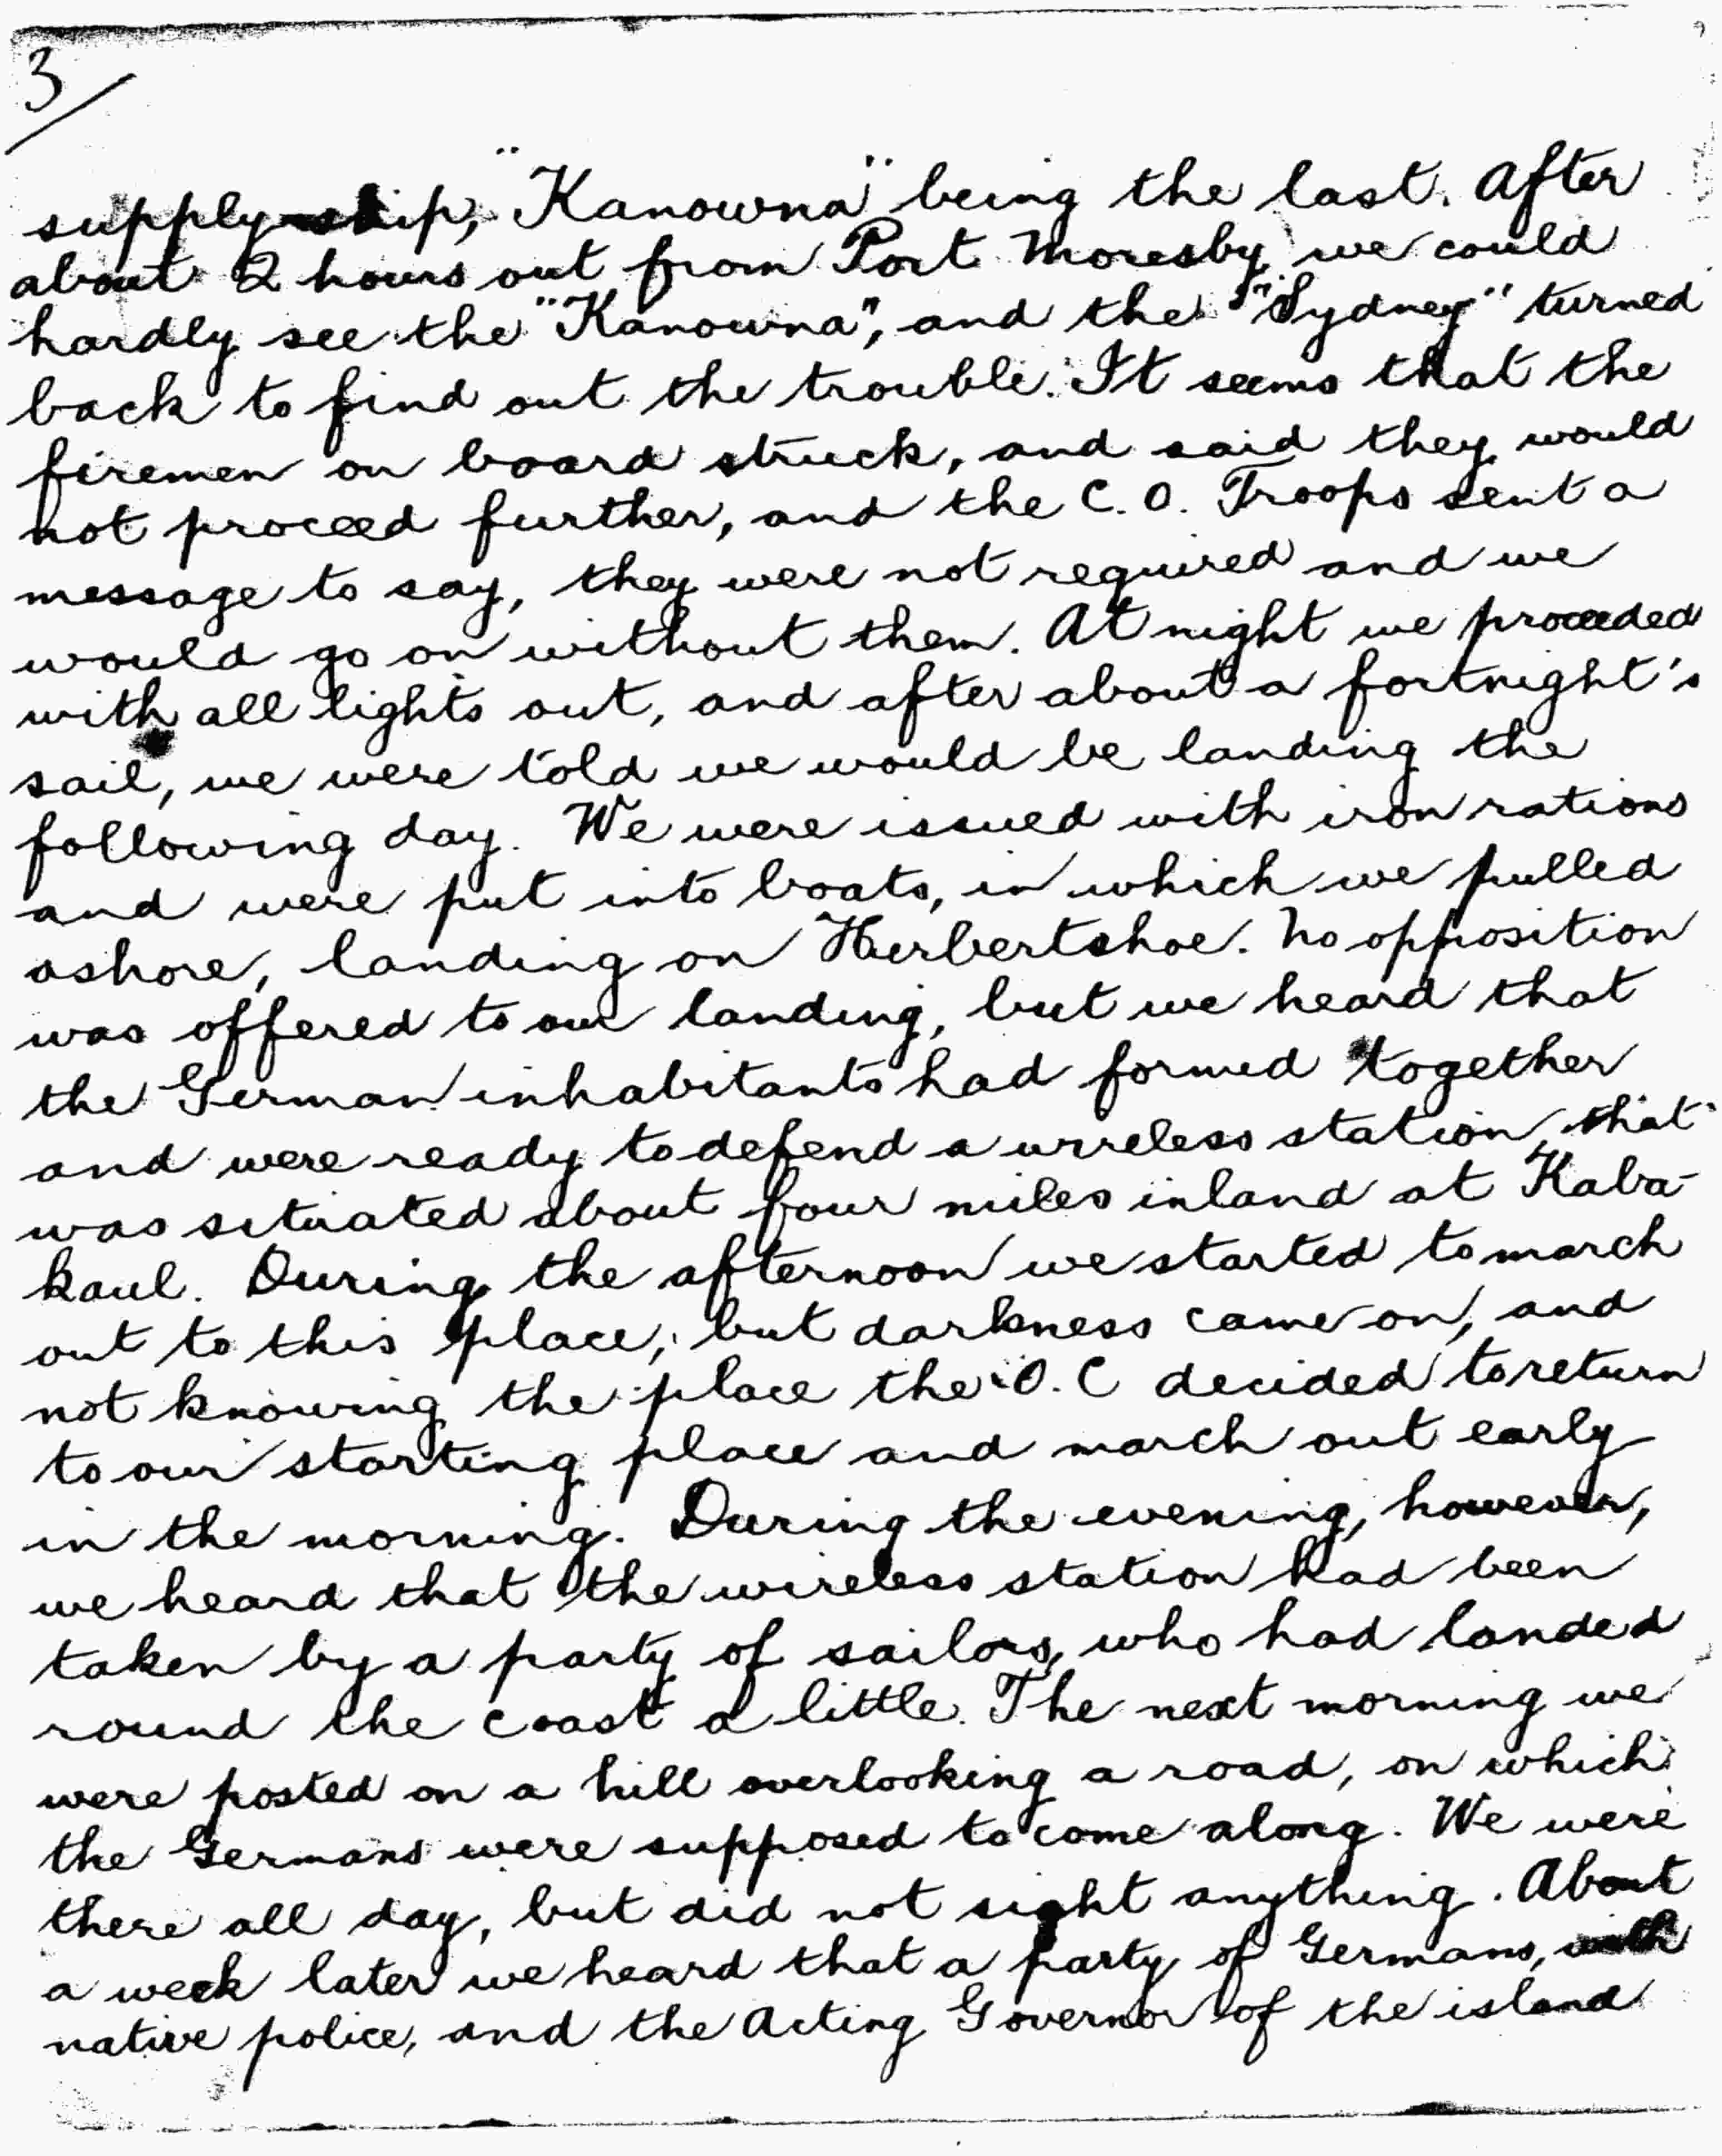 3/
supply ship, "Kanowna" being the last. After
about 2 hours out from Port Moresby we could
hardly see the "Kanowna", and the "Sydney" turned
back to find out the trouble. It seems that the
firemen on board struck, and said they would
not proceed further, and the C. O. Troops sent a
message to say, they were not required and we
would go on without them. At night we proceeded
with all lights out, and after about a fortnight's
sail, we were told we would be landing the
following day. We were issued with iron rations
and were put into boats, in which we pulled
ashore, landing on Herbertshoe. No opposition
was offered to our landing, but we heard that
the German inhabitants had formed together
and were ready to defend a wireless station, that
was situated about four miles inland at Kaba-
kaul. During the afternoon we started to march
out to this place, but darkness came on, and
not knowing the place the O. C decided to return
to our starting place and march out early
in the morning. During the evening, however,
we heard that the wireless station had been
taken by a party of sailors, who had landed
round the coast a little. The next morning we
were posted on a hill overlooking a road, on which
the Germans were supposed to come along. We were
there all day, but did not sight anything. About
a week later we heard that a party of Germans, with
native police, and the Acting Governor of the island